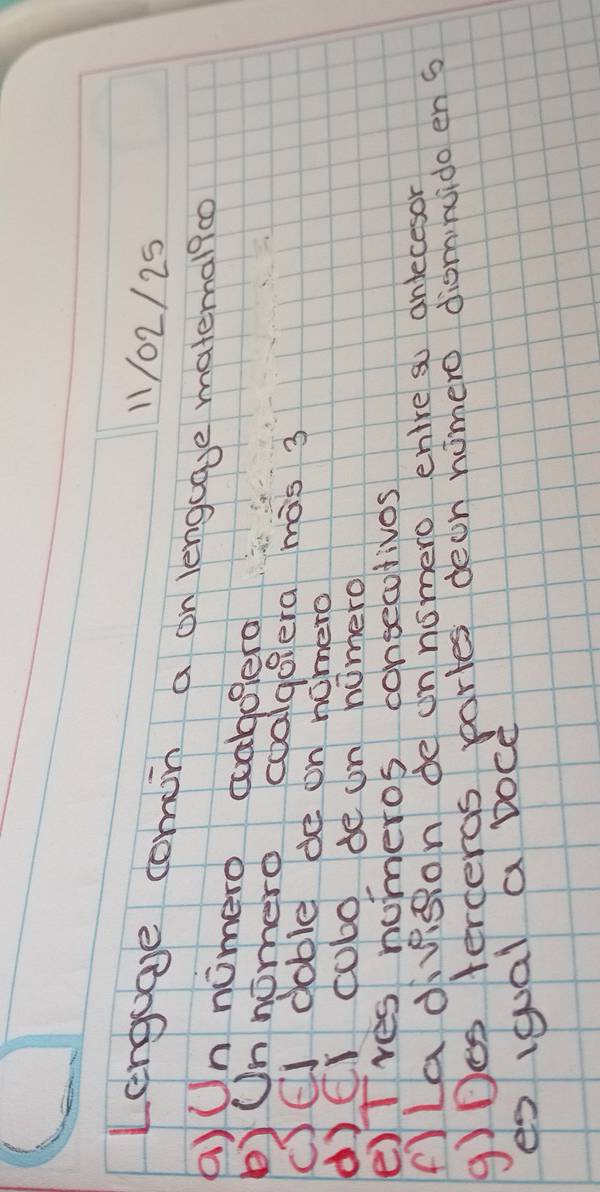 11/02/25
Lenguaje común a un lenguaje matematico
a) Un número cualquiera
b) Un número cualquiera más 3
c) El doble de un número
d) El cubo de un número
e) Tres números consecutivos
f) La división de un número entre su antecesor
g) Dos terceras partes de un número disminuido en 5
es igual a Doce